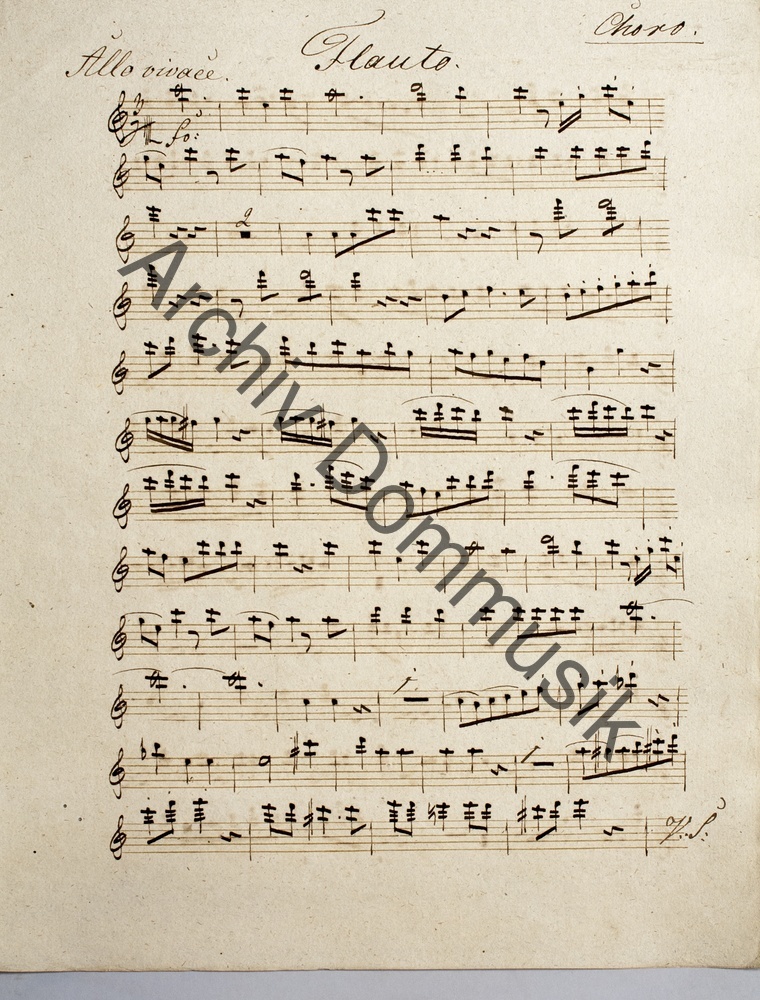 Choro.
Flauto.
Allo vivace.
3
4
fo:
2
1
1
V. S:
Archiv Dommusik